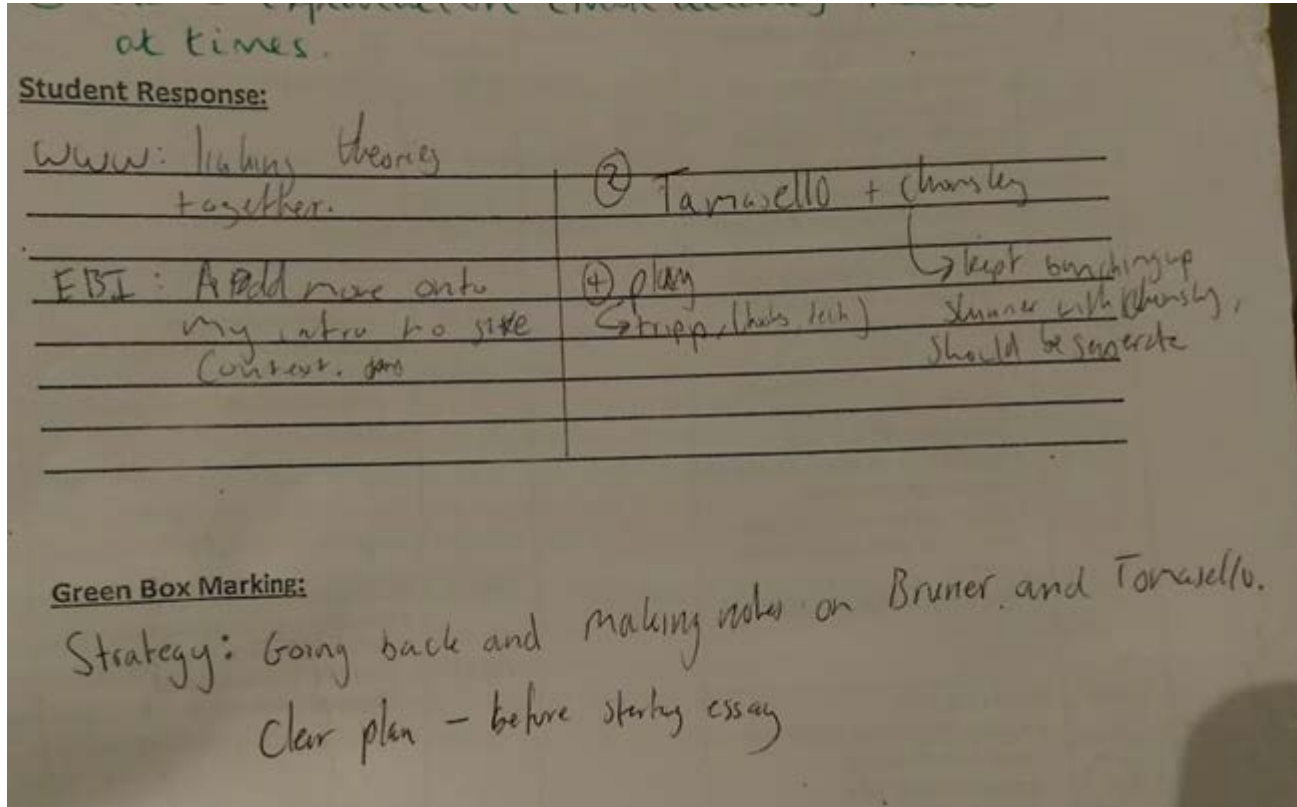 at times.
Student Response:
WWW: linking theories
together.
EBI: Add more onto
my intro to give
context.
② Tamasello + Chomsky
↳ kept bunching up
skinner with Chomsky,
should be seperate
④ play
↳ tripp,
Green Box Marking:
Strategy: Going back and making notes on Bruner and Tomasello.
Clear plan - before starting essay